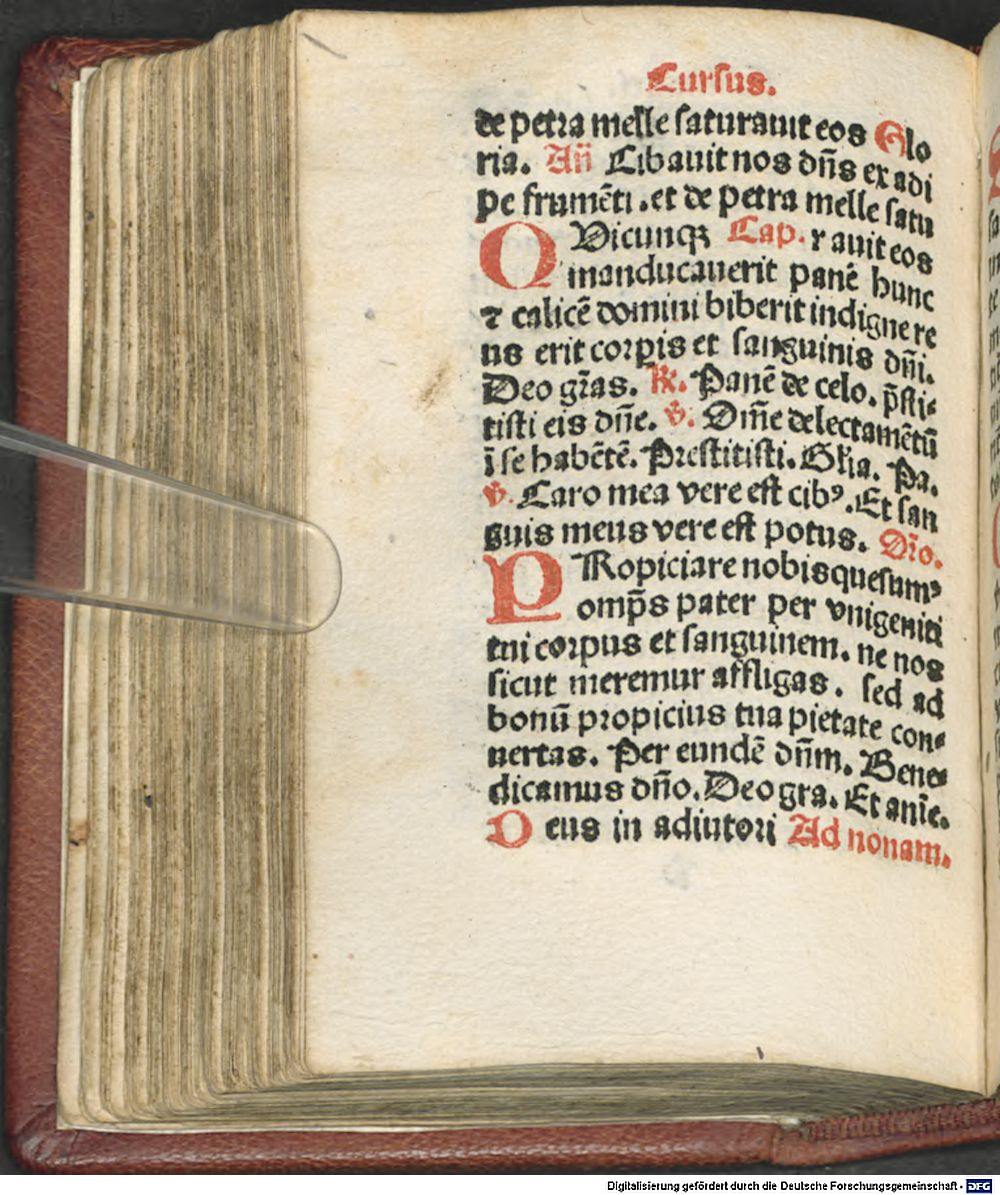 Cursus.
de petra melle saturauit eos Glo
ria. Añ Cibauit nos dñs ex adi
pe frumēti . et de petra melle satu
QVicunqꝫ Cap. rauit eos
manducauerit panē hunc
⁊ calicē domini biberit indigne re
us erit corpis et sanguinis dñi.
Deo gr̄as. ℟. Panē de celo. p̄sti⸗
tisti eis dñe. ℣. Om̄e delectamētū
ī se habētē. Prestitisti. Gl̄ia. Pa.
℣. Caro mea vere est cibꝰ. Et san
guis meus vere est potus. Or̄o.
PRopiciare nobis quesumꝰ
omp̄s pater per vnigeniti
tui corpus et sanguinem. ne nos
sicut meremur affligas. sed ad
bonū propicius tua pietate con⸗
uertas. Per eundē dñm. Bene⸗
dicamus dño. Deo gra. Et anīe.
Deus in adiutori Ad nonam.
Digitalisierung gefördert durch die Deutsche Forschungsgemeinschaft - DFG